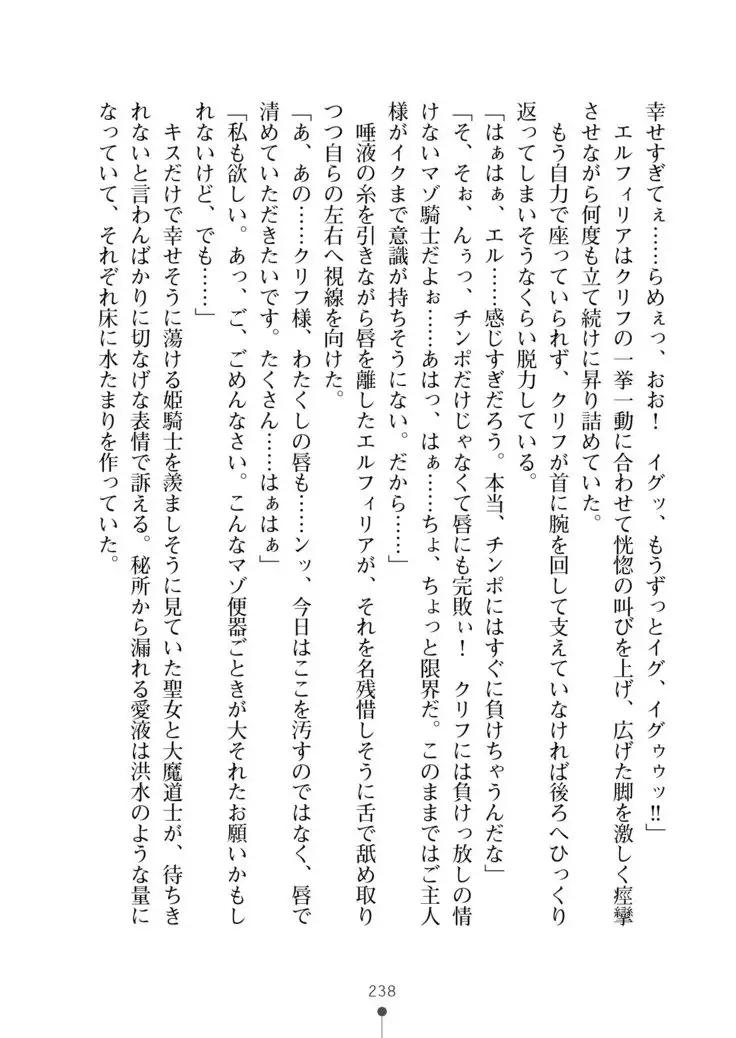 幸せすぎてぇ……らめぇっ、おお！　イグッ、もうずっとイグ、イグゥゥッ!!」
　エルフィリアはクリフの一挙一動に合わせて恍惚の叫びを上げ、広げた脚を激しく痙攣
させながら何度も立て続けに昇り詰めていた。
　もう自力で座っていられず、クリフが首に腕を回して支えていなければ後ろへひっくり
返ってしまいそうなくらい脱力している。
「はぁはぁ、エル……感じすぎだろう。本当、チンポにはすぐに負けちゃうんだな」
「そ、そぉ、んぅっ、チンポだけじゃなくて唇にも完敗ぃ！　クリフには負けっ放しの情
けないマゾ騎士だよぉ……あはっ、はぁ……ちょ、ちょっと限界だ。このままではご主人
様がイクまで意識が持ちそうにない。だから……」
　唾液の糸を引きながら唇を離したエルフィリアが、それを名残惜しそうに舌で舐め取り
つつ自らの左右へ視線を向けた。
「あ、あの……クリフ様、わたくしの唇も……ンッ、今日はここを汚すのではなく、唇で
清めていただきたいです。たくさん……はぁはぁ」
「私も欲しい。あっ、ご、ごめんなさい。こんなマゾ便器ごときが大それたお願いかもし
れないけど、でも……」
　キスだけで幸せそうに蕩ける姫騎士を羨ましそうに見ていた聖女と大魔道士が、待ちき
れないと言わんばかりに切なげな表情で訴える。秘所から漏れる愛液は洪水のような量に
なっていて、それぞれ床に水たまりを作っていた。
238